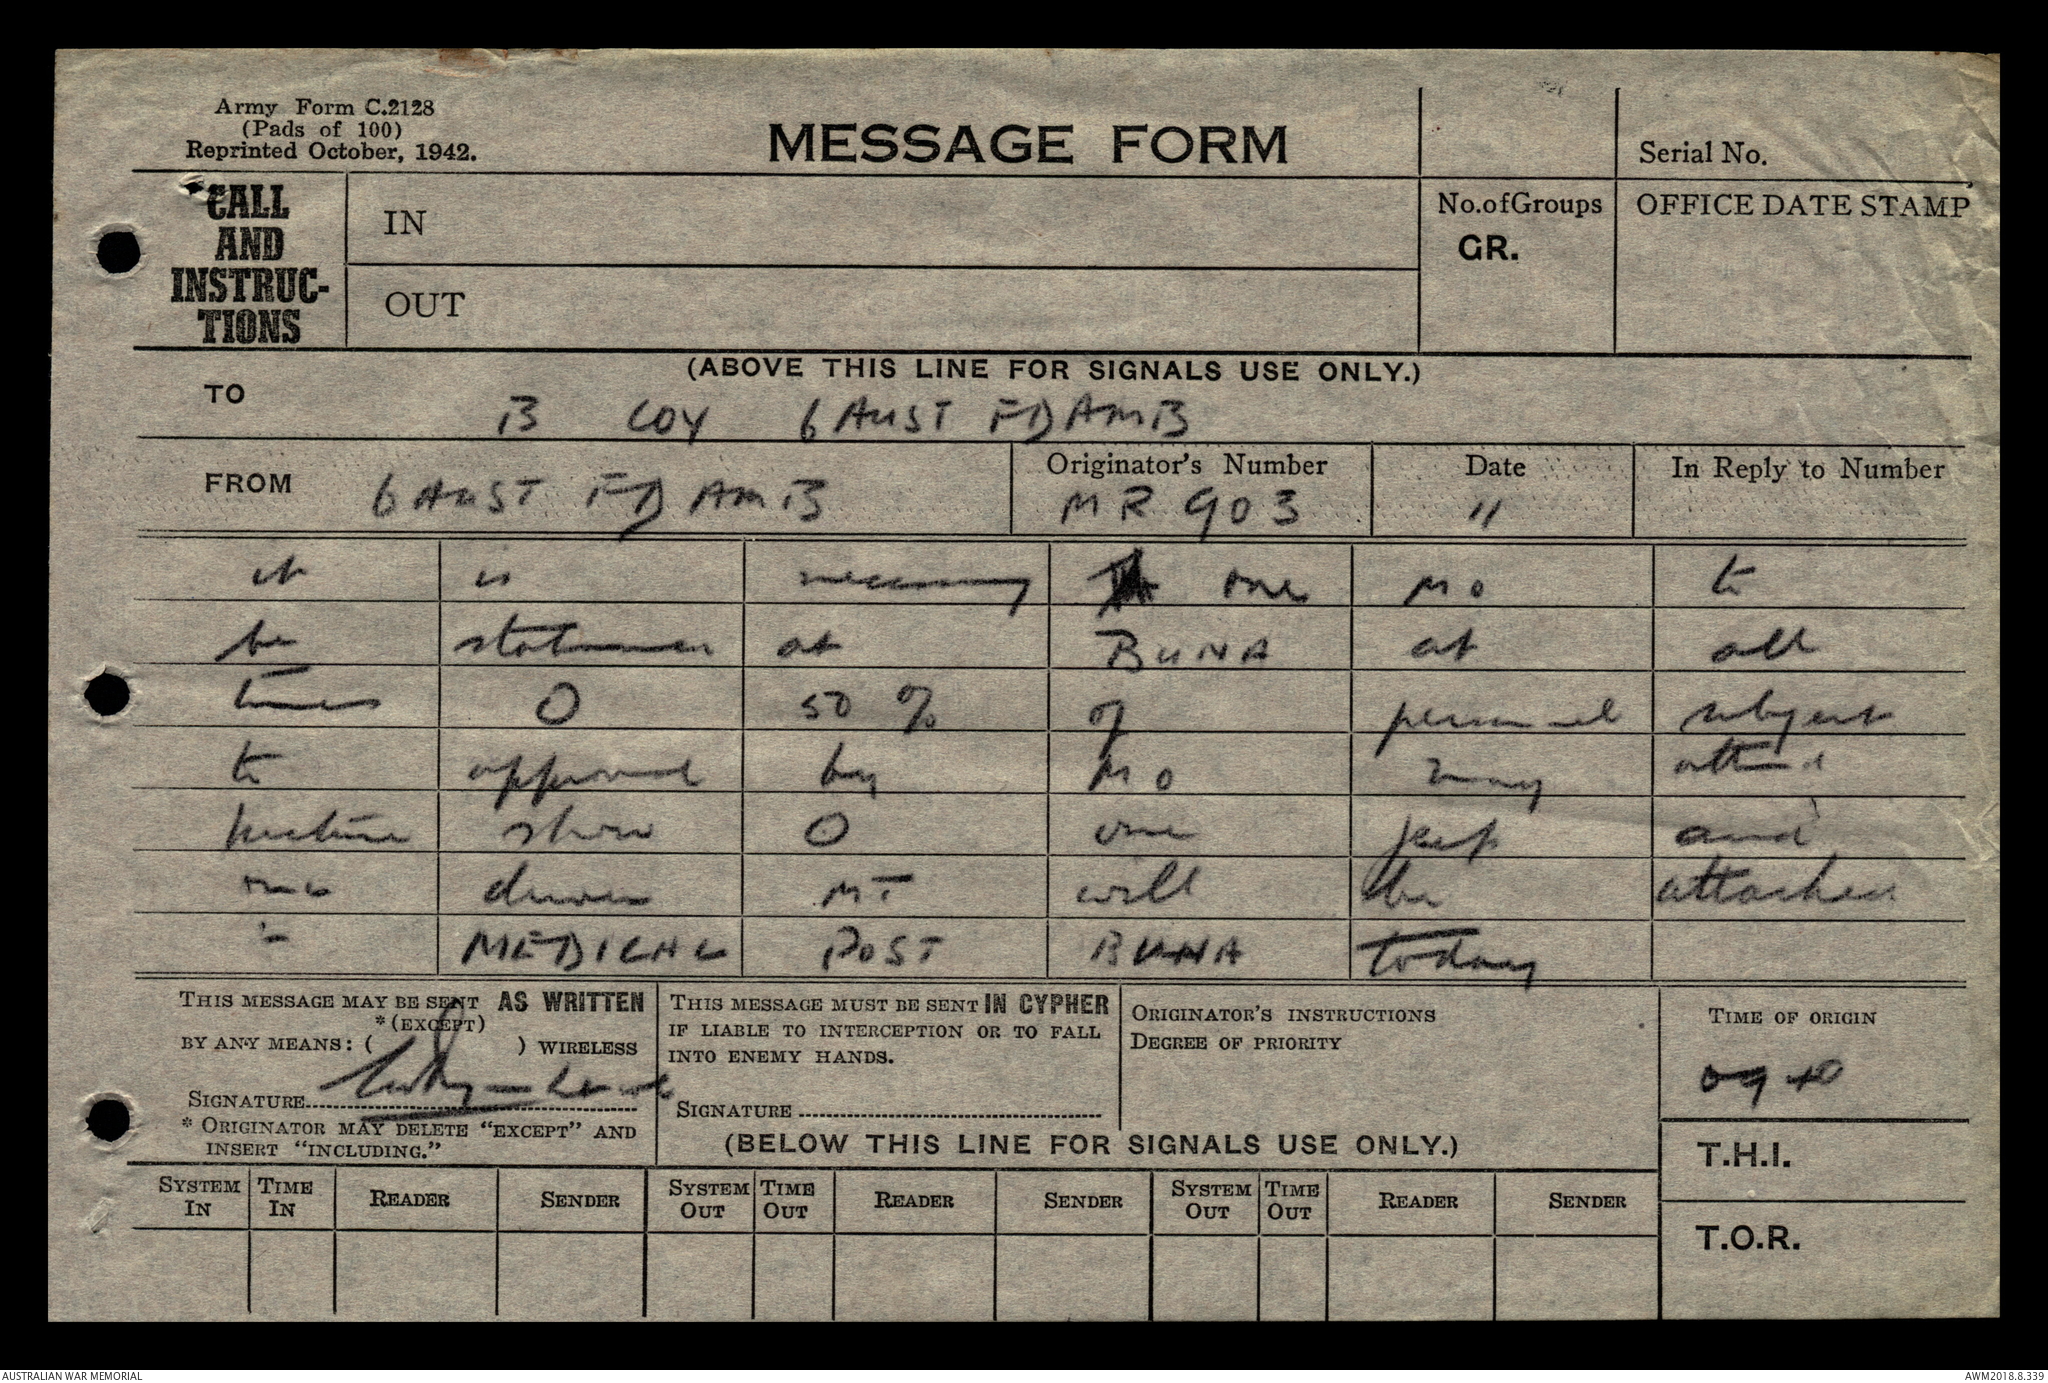 Army Form C.2128
(Pads of 100)
Reprinted October, 1942.
MESSAGE FORM
Serial No.
CALL AND INSTRUC-TIONS
IN
OUT
No. of Groups
GR.
OFFICE DATE STAMP
(ABOVE THIS LINE FOR SIGNALS USE ONLY.)
TO B COY 6 AUST FD AMB
FROM 6 AUST FD AMB
Originator's Number MR 903
Date 11
In Reply to Number
it is necessary one MO to
be stationed at BUNA at all
times O 50 % of personnel subject
to approval by MO may attend
picture show O one jeep and
two drivers MT will be attached
to MEDICAL POST BUNA today
THIS MESSAGE MAY BE SENT AS WRITTEN
*(EXCEPT)
BY ANY MEANS: ( ) WIRELESS
SIGNATURE
* ORIGINATOR MAY DELETE "EXCEPT" AND
INSERT "INCLUDING."
THIS MESSAGE MUST BE SENT IN CYPHER
IF LIABLE TO INTERCEPTION OR TO FALL
INTO ENEMY HANDS.
SIGNATURE
ORIGINATOR'S INSTRUCTIONS
DEGREE OF PRIORITY
TIME OF ORIGIN
0940
(BELOW THIS LINE FOR SIGNALS USE ONLY.)
T.H.I.
T.O.R.
SYSTEM IN TIME IN READER SENDER SYSTEM OUT TIME OUT READER SENDER SYSTEM OUT TIME OUT READER SENDER
AUSTRALIAN WAR MEMORIAL AWM2018.8.339